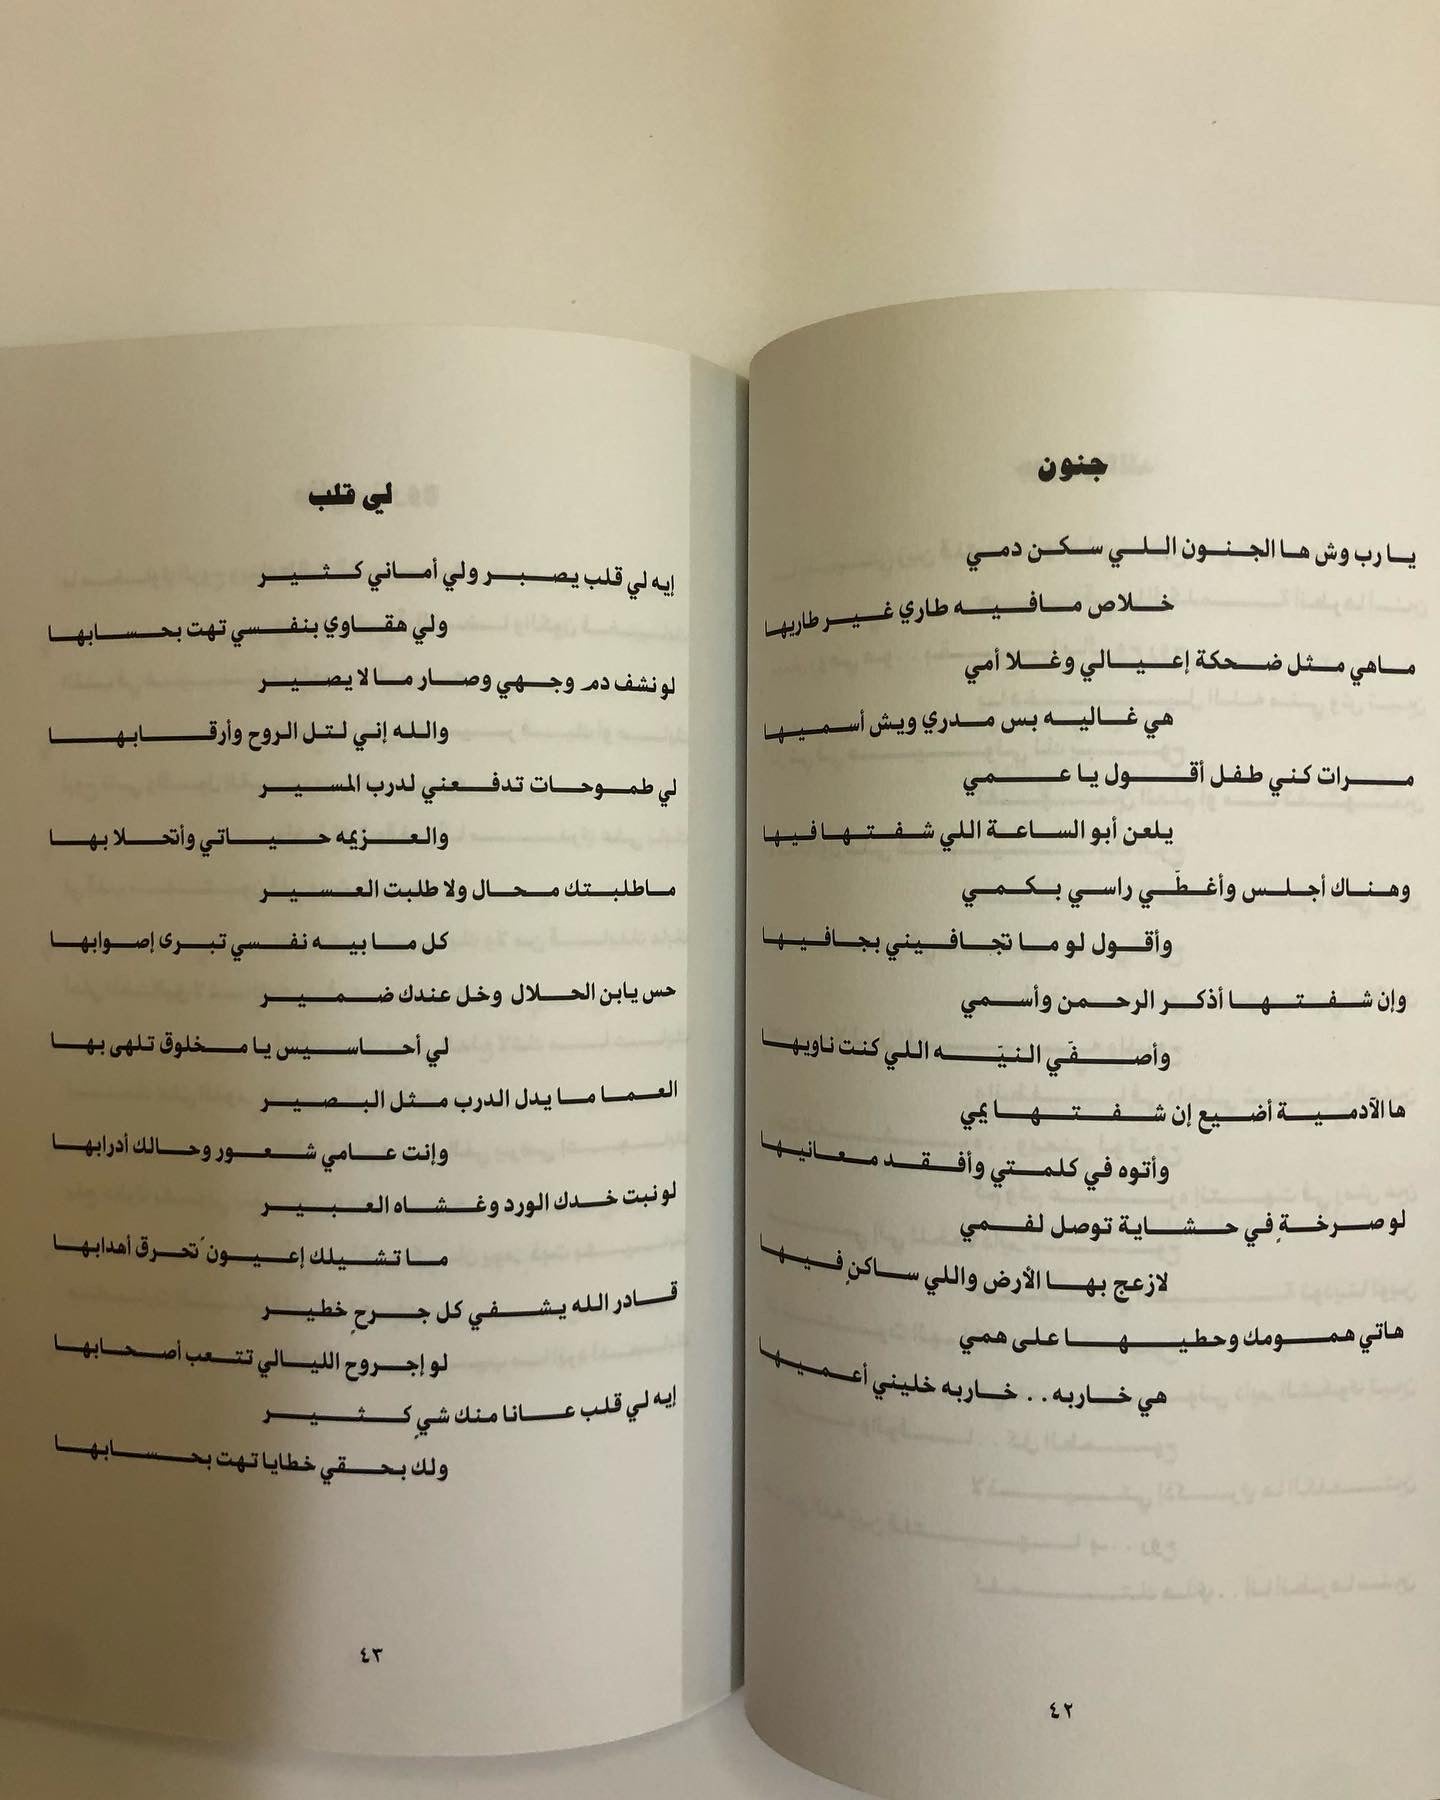 جنون
يا رب وش ها الجنون اللي سكن دمي
خلاص مافيه طاري غير طاريها
ماهي مثل ضحكة إعيالي وغلا أمي
هي غاليه بس مدري ويش أسميها
مرات كني طفل أقول يا عمي
يلعن أبو الساعة اللي شفتها فيها
وهناك أجلس وأغطّي راسي بكمي
وأقول لو ما تجافيني بجافيها
وإن شفتها أذكر الرحمن وأسمي
وأصفّي النيّه اللي كنت ناويها
ها الآدمية أضيع إن شفتها يمي
وأتوه في كلمتي وأفقد معانيها
لو صرخةٍ في حشاية توصل لفمي
لازعج بها الأرض واللي ساكنٍ فيها
هاتي همومك وحطيها على همي
هي خاربه.. خاربه خليني أعميها
٤٢
لي قلب
إيه لي قلب يصبر ولي أماني كثير
ولي هقاوي بنفسي تهت بحسابها
لو نشف دم وجهي وصار ما لا يصير
والله إني لتل الروح وأرقابها
لي طموحات تدفعني لدرب المسير
والعزيمه حياتي وأتحلا بها
ماطلبتك محال ولا طلبت العسير
كل ما بيه نفسي تبرى إصوابها
حس يابن الحلال وخل عندك ضمير
لي أحاسيس يا مخلوق تلهى بها
العما ما يدل الدرب مثل البصير
وإنت عامي شعور وحالك أدرابها
لو نبت خدك الورد وغشاه العبير
ما تشيلك إعيونٌ تحرق أهدابها
قادر الله يشفي كل جرحٍ خطير
لو إجروح الليالي تتعب أصحابها
إيه لي قلب عانا منك شيٍ كثير
ولك بحقي خطايا تهت بحسابها
٤٣